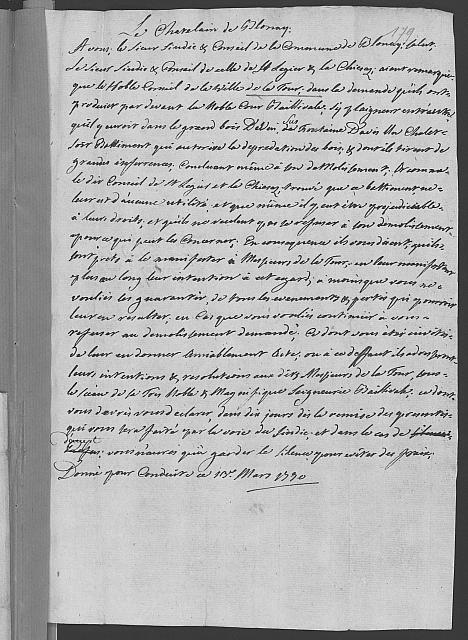 Le Chatelain de Blonay.
179
A vous, le Sieur Sindic & Conseil de la Commune de Blonay, Salut.
Le Sieur Sindic & Conseil de celle de St Legier & la Chiesaz, aiant remarqué
que le Noble Conseil de la Ville de la Tour, dans la demande qu'ils ont
produite par devant la Noble Cour Baillivale, s'y plaignent entr'autres
qu'il y auroit dans le grand bois Devin, sus Fontaine David Un Chalet
soit Battiment qui autorise la depredation des bois, & dont ils tirent de
grandes inferences, Concluant même à son demolissement, Et comme
le dit Conseil de St Legier & la Chiesaz, trouve que ce battiment ne
leur est d'aucune utilité, et que même il peut être prejudiciable
à leurs droits, et qu'ils ne veulent pas se refuser à son demolissement
pour ce qui peut les Concerner, En consequence ils vous disent qu'ils
sont prets à le manifester à Messieurs de la Tour, en leur manifestant
plus au long leur intention à cet egard, à moins que vous ne
vouliés les guarantir, de tous les evenements & pertes qui pourroient
leur en resulter, en Cas que vous vouliés continuer à vous
refuser au demolissement demandé. Ce dont vous êtes invités
de leur en donner amiablement Acte, ou à ce deffaut ils adresseront
leurs intentions & resolutions aux dits Messieurs de la Tour, sous
le sceau de sa Très Noble & Magnifique Seigneurie Baillivale, ce dont
vous devrés vous declarer, dans dix jours dès la remise des presentes
qui vous sera faite par la voie du Sindic, et dans le cas de
d'aquiest
vous n'aures qu'à garder le silence pour eviter des fraix.
Donné pour Conduite ce 13e Mars 1790